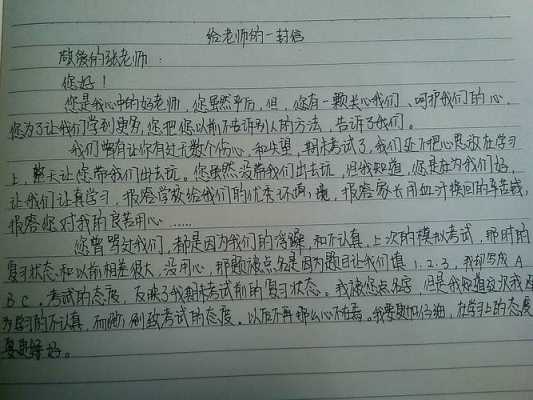 给老师的一封信
敬爱的张老师：
您好！
您是我心中的好老师，您虽然平凡，但，您有一颗关心我们、呵护我们的心，
您为了让我们学到更多，您把您以前不告诉别人的方法，告诉了我们。
我们曾有让你有过无数个伤心，和失望，期末考试了，我们还不把心思放在学习
上，整天让您带我们出去玩。您虽然没带我们出去玩，但我知道，您是在为我们好，
让我们认真学习，报答学校给我们的优秀环境，报答家长用血汗换回的辛苦钱，
报答您对我的良苦用心……
您曾骂过我们，都是因为我们的浮躁，和不认真，上次的模拟考试，那时的
复习状态和以前相差很大，没用心，那题被点名是因为题目让我们填1.2.3，我却写成A
B C，考试的态度，反映了我期末考试前的复习状态。我被您点名后，但是我知道这次我因
为学习的不认真，而导致考试的态度。以后不再那么心不在焉。我要更加仔细，在学习上的态度
要更好。